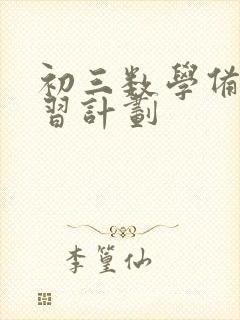 初三数學備
習計劃
李篁仙